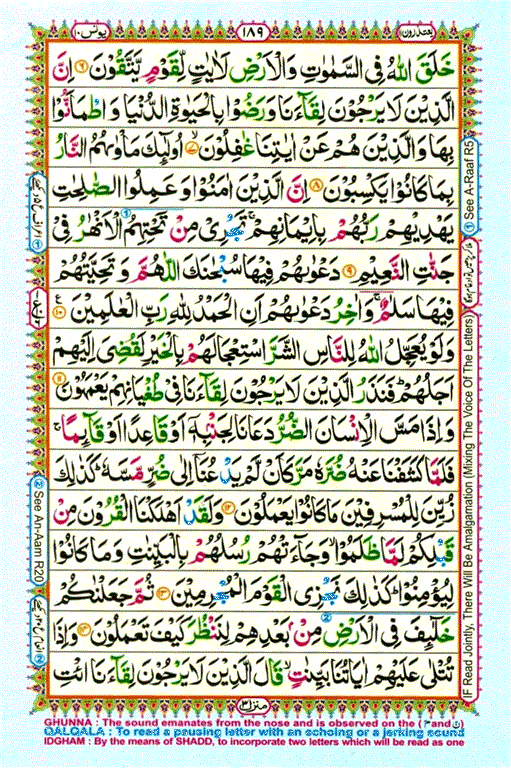 يعتذرون ١١
١٨٩
يونس ١٠
خَلَقَ اللّٰهُ فِى السَّمٰوٰتِ وَالْاَرْضِ لَاٰيٰتٍ لِّقَوْمٍ يَّتَّقُوْنَ ۝۶ اِنَّ
الَّذِيْنَ لَا يَرْجُوْنَ لِقَآءَنَا وَرَضُوْا بِالْحَيٰوةِ الدُّنْيَا وَاطْمَاَنُّوْا
بِهَا وَالَّذِيْنَ هُمْ عَنْ اٰيٰتِنَا غٰفِلُوْنَ ۝۷ اُولٰٓئِكَ مَاْوٰىهُمُ النَّارُ
بِمَا كَانُوْا يَكْسِبُوْنَ ۝۸ اِنَّ الَّذِيْنَ اٰمَنُوْا وَعَمِلُوا الصّٰلِحٰتِ
يَهْدِيْهِمْ رَبُّهُمْ بِاِيْمَانِهِمْ ۚ تَجْرِىْ مِنْ تَحْتِهِمُ الْاَنْهٰرُ فِىْ
جَنّٰتِ النَّعِيْمِ ۝۹ دَعْوٰىهُمْ فِيْهَا سُبْحٰنَكَ اللّٰهُمَّ وَتَحِيَّتُهُمْ
فِيْهَا سَلٰمٌ ۚ وَاٰخِرُ دَعْوٰىهُمْ اَنِ الْحَمْدُ لِلّٰهِ رَبِّ الْعٰلَمِيْنَ ۝۱۰
وَلَوْ يُعَجِّلُ اللّٰهُ لِلنَّاسِ الشَّرَّ اسْتِعْجَالَهُمْ بِالْخَيْرِ لَقُضِىَ اِلَيْهِمْ
اَجَلُهُمْ ؕ فَنَذَرُ الَّذِيْنَ لَا يَرْجُوْنَ لِقَآءَنَا فِىْ طُغْيَانِهِمْ يَعْمَهُوْنَ ۝۱۱
وَاِذَا مَسَّ الْاِنْسَانَ الضُّرُّ دَعَانَا لِجَنْۢبِهٖۤ اَوْ قَاعِدًا اَوْ قَآئِمًا ۚ
فَلَمَّا كَشَفْنَا عَنْهُ ضُرَّهٗ مَرَّ كَاَنْ لَّمْ يَدْعُنَاۤ اِلٰى ضُرٍّ مَّسَّهٗ ؕ كَذٰلِكَ
زُيِّنَ لِلْمُسْرِفِيْنَ مَا كَانُوْا يَعْمَلُوْنَ ۝۱۲ وَلَقَدْ اَهْلَكْنَا الْقُرُوْنَ مِنْ
قَبْلِكُمْ لَمَّا ظَلَمُوْا ۙ وَجَآءَتْهُمْ رُسُلُهُمْ بِالْبَيِّنٰتِ وَمَا كَانُوْا
لِيُؤْمِنُوْا ؕ كَذٰلِكَ نَجْزِى الْقَوْمَ الْمُجْرِمِيْنَ ۝۱۳ ثُمَّ جَعَلْنٰكُمْ
خَلٰٓئِفَ فِى الْاَرْضِ مِنْۢ بَعْدِهِمْ لِنَنْظُرَ كَيْفَ تَعْمَلُوْنَ ۝۱۴ وَاِذَا
تُتْلٰى عَلَيْهِمْ اٰيَاتُنَا بَيِّنٰتٍ ۙ قَالَ الَّذِيْنَ لَا يَرْجُوْنَ لِقَآءَنَا ائْتِ
منزل ٣
① See A-Raaf R5
IF Read Jointly, There Will Be Amalgamation (Mixing The Voice Of The Letters)
② See An-Aam R20
GHUNNA : The sound emanates from the nose and is observed on the (م and ن)
QALQALA : To read a pausing letter with an echoing or a jerking sound
IDGHAM : By the means of SHADD, to incorporate two letters which will be read as one